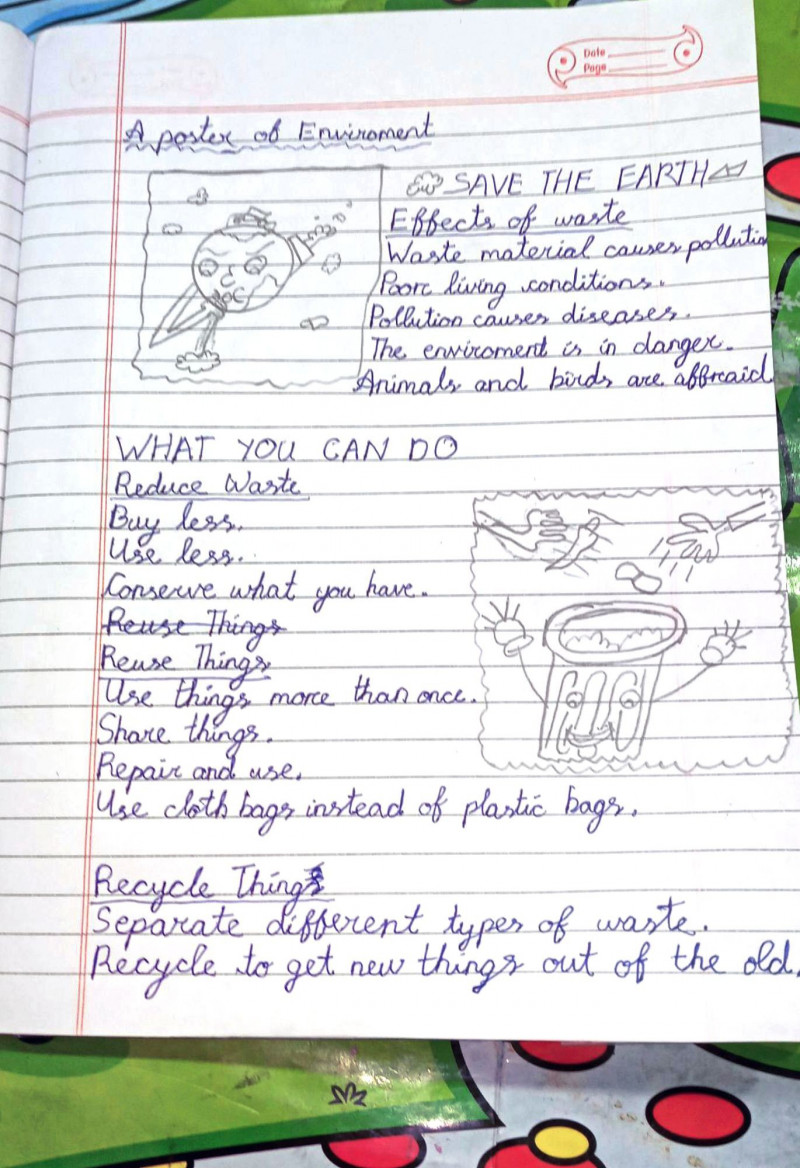 Date
Page
A poster of Enviroment
SAVE THE EARTH
Effects of waste
Waste material causes pollution
Poor living conditions.
Pollution causes diseases.
The enviroment is in danger.
Animals and birds are affraid
WHAT YOU CAN DO
Reduce Waste
Buy less.
Use less.
Conserve what you have.
Reuse Things
Reuse Things
Use things more than once.
Share things.
Repair and use.
Use cloth bags instead of plastic bags.
Recycle Things
Separate different types of waste.
Recycle to get new things out of the old.